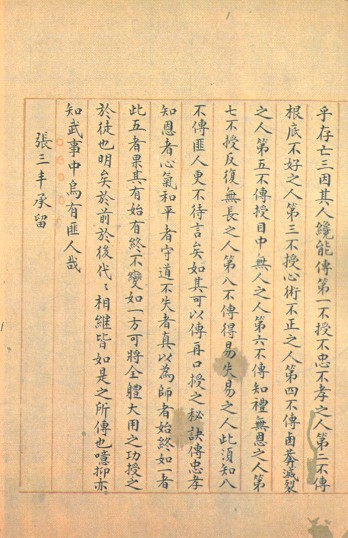 乎存亡三因其人纔能傳第一不授不忠不孝之人第二不傳
根底不好之人第三不授心術不正之人第四不傳鹵莽滅裂
之人第五不傳授目中無人之人第六不傳知禮無恩之人第
七不授反復無長之人第八不傳得易失易之人此須知八
不傳匪人更不待言矣如其可以傳再口授之秘訣傳忠孝
知恩者心氣和平者守道不失者真以為師者始終如一者
此五者果其有始有終不變如一方可將全體大用之功授之
於徒也明矣於前於後代〻相繼皆如是之所傳也噫抑亦
知武事中烏有匪人哉
張三丰承留